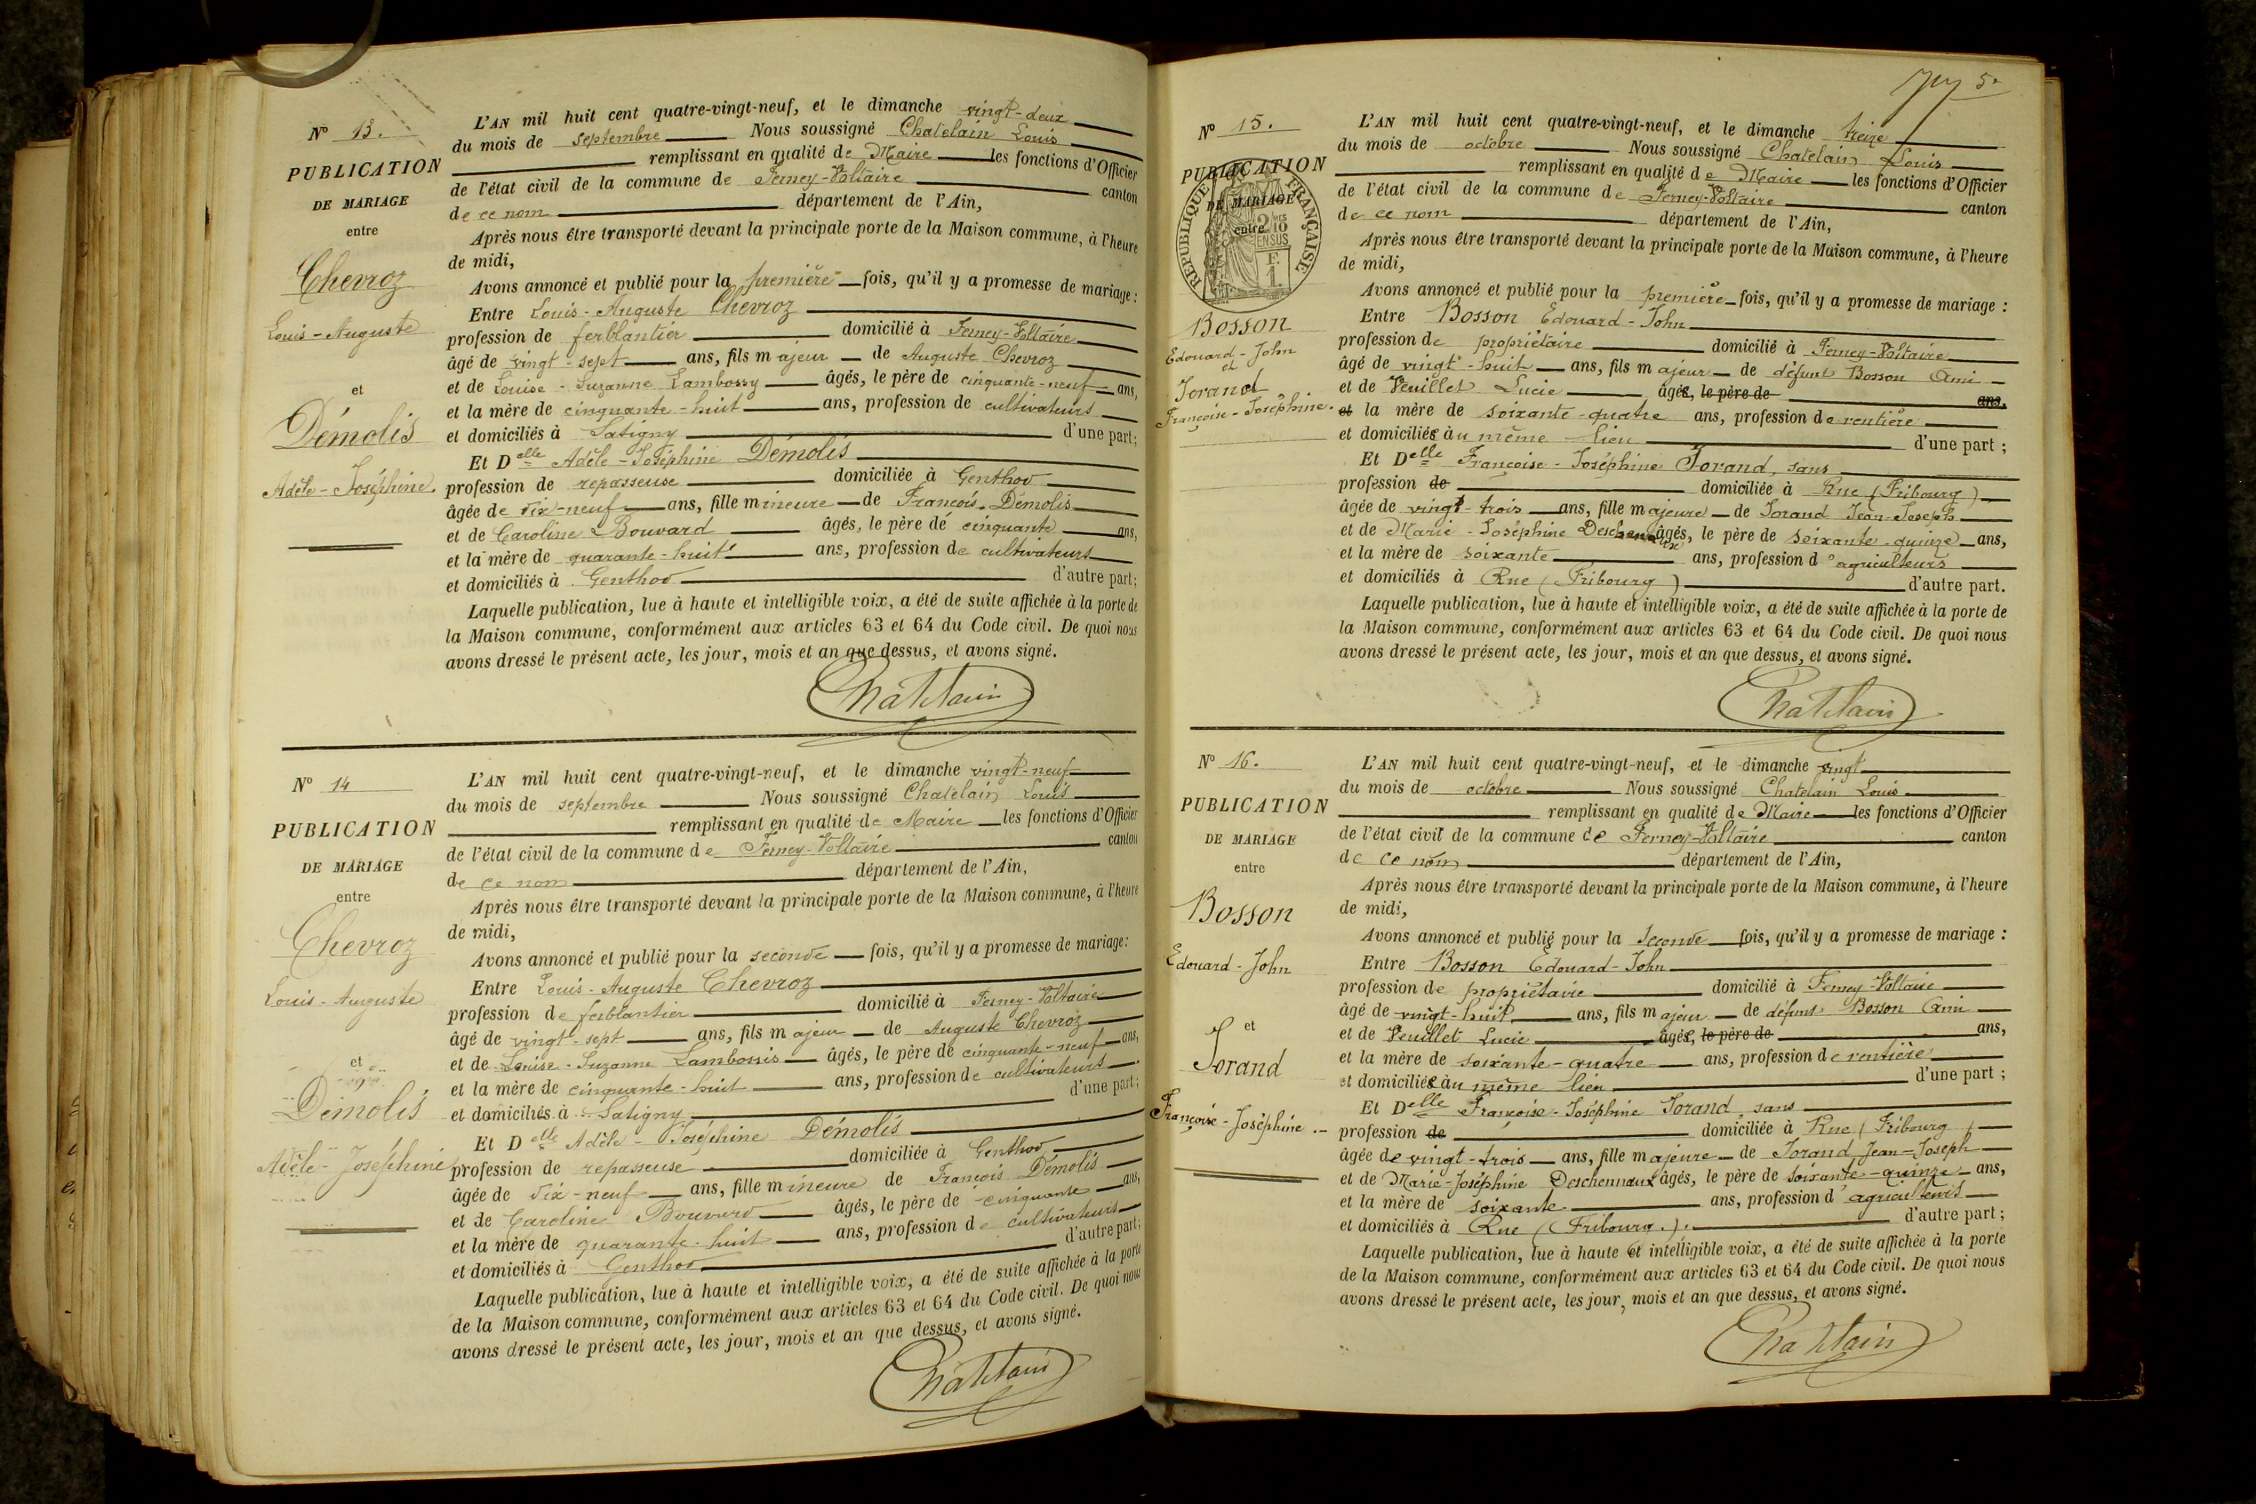 N° 13.
PUBLICATION
DE MARIAGE
entre
Chevroz
Louis-Auguste
et
Démolis
Adèle-Joséphine.
L'AN mil huit cent quatre-vingt-neuf, et le dimanche vingt-deux
du mois de septembre Nous soussigné Chatelain Louis
remplissant en qualité de Maire les fonctions d'Officier
de l'état civil de la commune de Ferney-Voltaire canton
de ce nom département de l'Ain,
Après nous être transporté devant la principale porte de la Maison commune, à l'heure
de midi,
Avons annoncé et publié pour la première fois, qu'il y a promesse de mariage :
Entre Louis-Auguste Chevroz
profession de ferblantier domicilié à Ferney-Voltaire
âgé de vingt-sept ans, fils majeur de Auguste Chevroz
et de Louise-Suzanne Lambossy âgés, le père de cinquante-neuf ans,
et la mère de cinquante-huit ans, profession de cultivateurs
et domiciliés à Satigny d'une part;
Et Delle Adèle-Joséphine Démolis
profession de repasseuse domiciliée à Genthod
âgée de dix-neuf ans, fille mineure de François Démolis
et de Caroline Bouvard âgés, le père de cinquante ans,
et la mère de quarante-huit ans, profession de cultivateurs
et domiciliés à Genthod d'autre part;
Laquelle publication, lue à haute et intelligible voix, a été de suite affichée à la porte de
la Maison commune, conformément aux articles 63 et 64 du Code civil. De quoi nous
avons dressé le présent acte, les jour, mois et an que dessus, et avons signé.
Chatelain
N° 14
PUBLICATION
DE MARIAGE
entre
Chevroz
Louis-Auguste
et
Démolis
Adèle-Joséphine
L'AN mil huit cent quatre-vingt-neuf, et le dimanche vingt-neuf
du mois de septembre Nous soussigné Chatelain Louis
remplissant en qualité de Maire les fonctions d'Officier
de l'état civil de la commune de Ferney-Voltaire canton
de ce nom département de l'Ain,
Après nous être transporté devant la principale porte de la Maison commune, à l'heure
de midi,
Avons annoncé et publié pour la seconde fois, qu'il y a promesse de mariage:
Entre Louis-Auguste Chevroz
profession de ferblantier domicilié à Ferney-Voltaire
âgé de vingt-sept ans, fils majeur de Auguste Chevroz
et de Louise-Suzanne Lambossis âgés, le père de cinquante-neuf ans,
et la mère de cinquante-huit ans, profession de cultivateurs
et domiciliés à Satigny d'une part;
Et Delle Adèle-Joséphine Démolis
profession de repasseuse domiciliée à Genthod
âgée de dix-neuf ans, fille mineure de François Démolis
et de Caroline Bouvard âgés, le père de cinquante ans,
et la mère de quarante-huit ans, profession de cultivateurs
et domiciliés à Genthod d'autre part;
Laquelle publication, lue à haute et intelligible voix, a été de suite affichée à la porte
de la Maison commune, conformément aux articles 63 et 64 du Code civil. De quoi nous
avons dressé le présent acte, les jour, mois et an que dessus, et avons signé.
Chatelain
N° 15.
PUBLICATION
DE MARIAGE
entre
REPUBLIQUE FRANÇAISE
2/10 EN SUS
F. 1.
Bosson
Edouard-John
et
Jorand
Françoise-Joséphine.
L'AN mil huit cent quatre-vingt-neuf, et le dimanche treize
du mois de octobre Nous soussigné Chatelain Louis
remplissant en qualité de Maire les fonctions d'Officier
de l'état civil de la commune de Ferney-Voltaire canton
de ce nom département de l'Ain,
Après nous être transporté devant la principale porte de la Maison commune, à l'heure
de midi,
Avons annoncé et publié pour la première fois, qu'il y a promesse de mariage :
Entre Bosson Edouard-John
profession de propriétaire domicilié à Ferney-Voltaire
âgé de vingt-huit ans, fils majeur de défunt Bosson Ami
et de Veuillet Lucie âgée, le père de ans,
et la mère de soixante-quatre ans, profession de rentière
et domiciliée au même lieu d'une part ;
Et Delle Françoise-Joséphine Jorand, sans
profession de domiciliée à Rue (Fribourg)
âgée de vingt-trois ans, fille majeure de Jorand Jean-Joseph
et de Marie-Joséphine Deschenaux âgés, le père de soixante-quinze ans,
et la mère de soixante ans, profession d'agriculteurs
et domiciliés à Rue (Fribourg) d'autre part.
Laquelle publication, lue à haute et intelligible voix, a été de suite affichée à la porte de
la Maison commune, conformément aux articles 63 et 64 du Code civil. De quoi nous
avons dressé le présent acte, les jour, mois et an que dessus, et avons signé.
Chatelain
N° 16.
PUBLICATION
DE MARIAGE
entre
Bosson
Edouard-John
et
Jorand
Françoise-Joséphine
L'AN mil huit cent quatre-vingt-neuf, et le dimanche vingt
du mois de octobre Nous soussigné Chatelain Louis
remplissant en qualité de Maire les fonctions d'Officier
de l'état civil de la commune de Ferney-Voltaire canton
de ce nom département de l'Ain,
Après nous être transporté devant la principale porte de la Maison commune, à l'heure
de midi,
Avons annoncé et publié pour la seconde fois, qu'il y a promesse de mariage :
Entre Bosson Edouard-John
profession de propriétaire domicilié à Ferney-Voltaire
âgé de vingt-huit ans, fils majeur de défunt Bosson Ami
et de Veuillet Lucie âgée, le père de ans,
et la mère de soixante-quatre ans, profession de rentière
et domiciliée au même lieu d'une part ;
Et Delle Françoise-Joséphine Jorand, sans
profession de domiciliée à Rue (Fribourg)
âgée de vingt-trois ans, fille majeure de Jorand Jean-Joseph
et de Marie-Joséphine Deschennaux âgés, le père de soixante-quinze ans,
et la mère de soixante ans, profession d'agriculteurs
et domiciliés à Rue (Fribourg). d'autre part ;
Laquelle publication, lue à haute et intelligible voix, a été de suite affichée à la porte
de la Maison commune, conformément aux articles 63 et 64 du Code civil. De quoi nous
avons dressé le présent acte, les jour, mois et an que dessus, et avons signé.
Chatelain